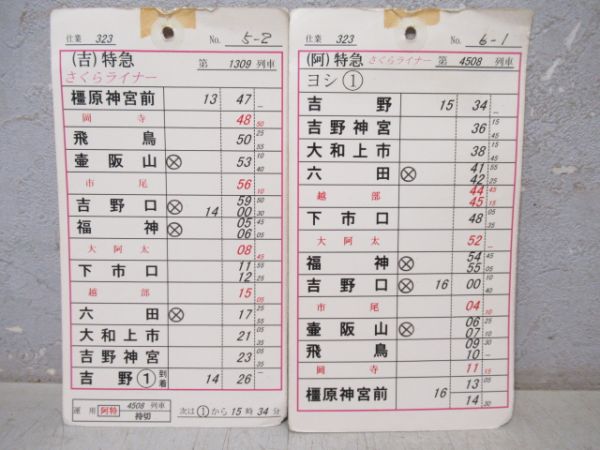 仕業 323 No. 5-2
(吉)特急 第 1309 列車
さくらライナー
橿原神宮前 13 47 —
岡寺 48 50
飛鳥 50 25 55
壷阪山 ⊗ 53 10 40
市尾 56 10
吉野口 ⊗ 14 59 00 55 30
福神 ⊗ 05 06 45 05
大阿太 08 45
下市口 11 12 55 25
越部 15 05
六田 ⊗ 17 05 55
大和上市 21 05 35
吉野神宮 23 05 35
吉野 ① 到着 14 26 —
運用 阿特 4508 列車 待切 次は①から 15 時 34 分
仕業 323 No. 6-1
(阿)特急 さくらライナー 第 4508 列車
ヨシ ①
吉野 15 34 —
吉野神宮 36 15 45
大和上市 38 15 45
六田 ⊗ 41 42 55 35
越部 44 45 45 15
下市口 48 05 35
大阿太 52 —
福神 ⊗ 54 55 45 05
吉野口 ⊗ 16 00 10 40
市尾 04 10
壷阪山 ⊗ 06 07 35 05
飛鳥 09 10 30 —
岡寺 11 15
橿原神宮前 16 13 14 05 30